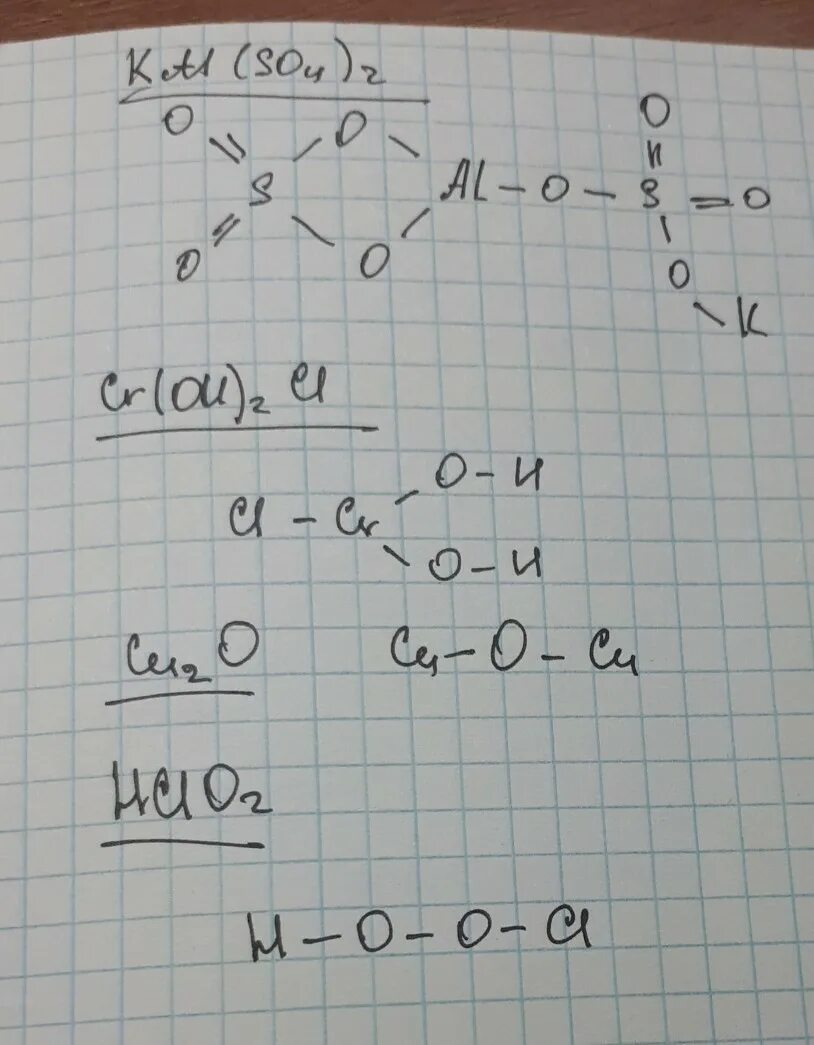 KAl(SO₄)₂
O O O
\\ / \ ||
S Al – O – S = O
// \ / |
O O O
\ K
Cr(OH)₂Cl
O–H
Cl – Cr
O–H
Cu₂O Cu–O–Cu
HClO₂
H–O–O–Cl